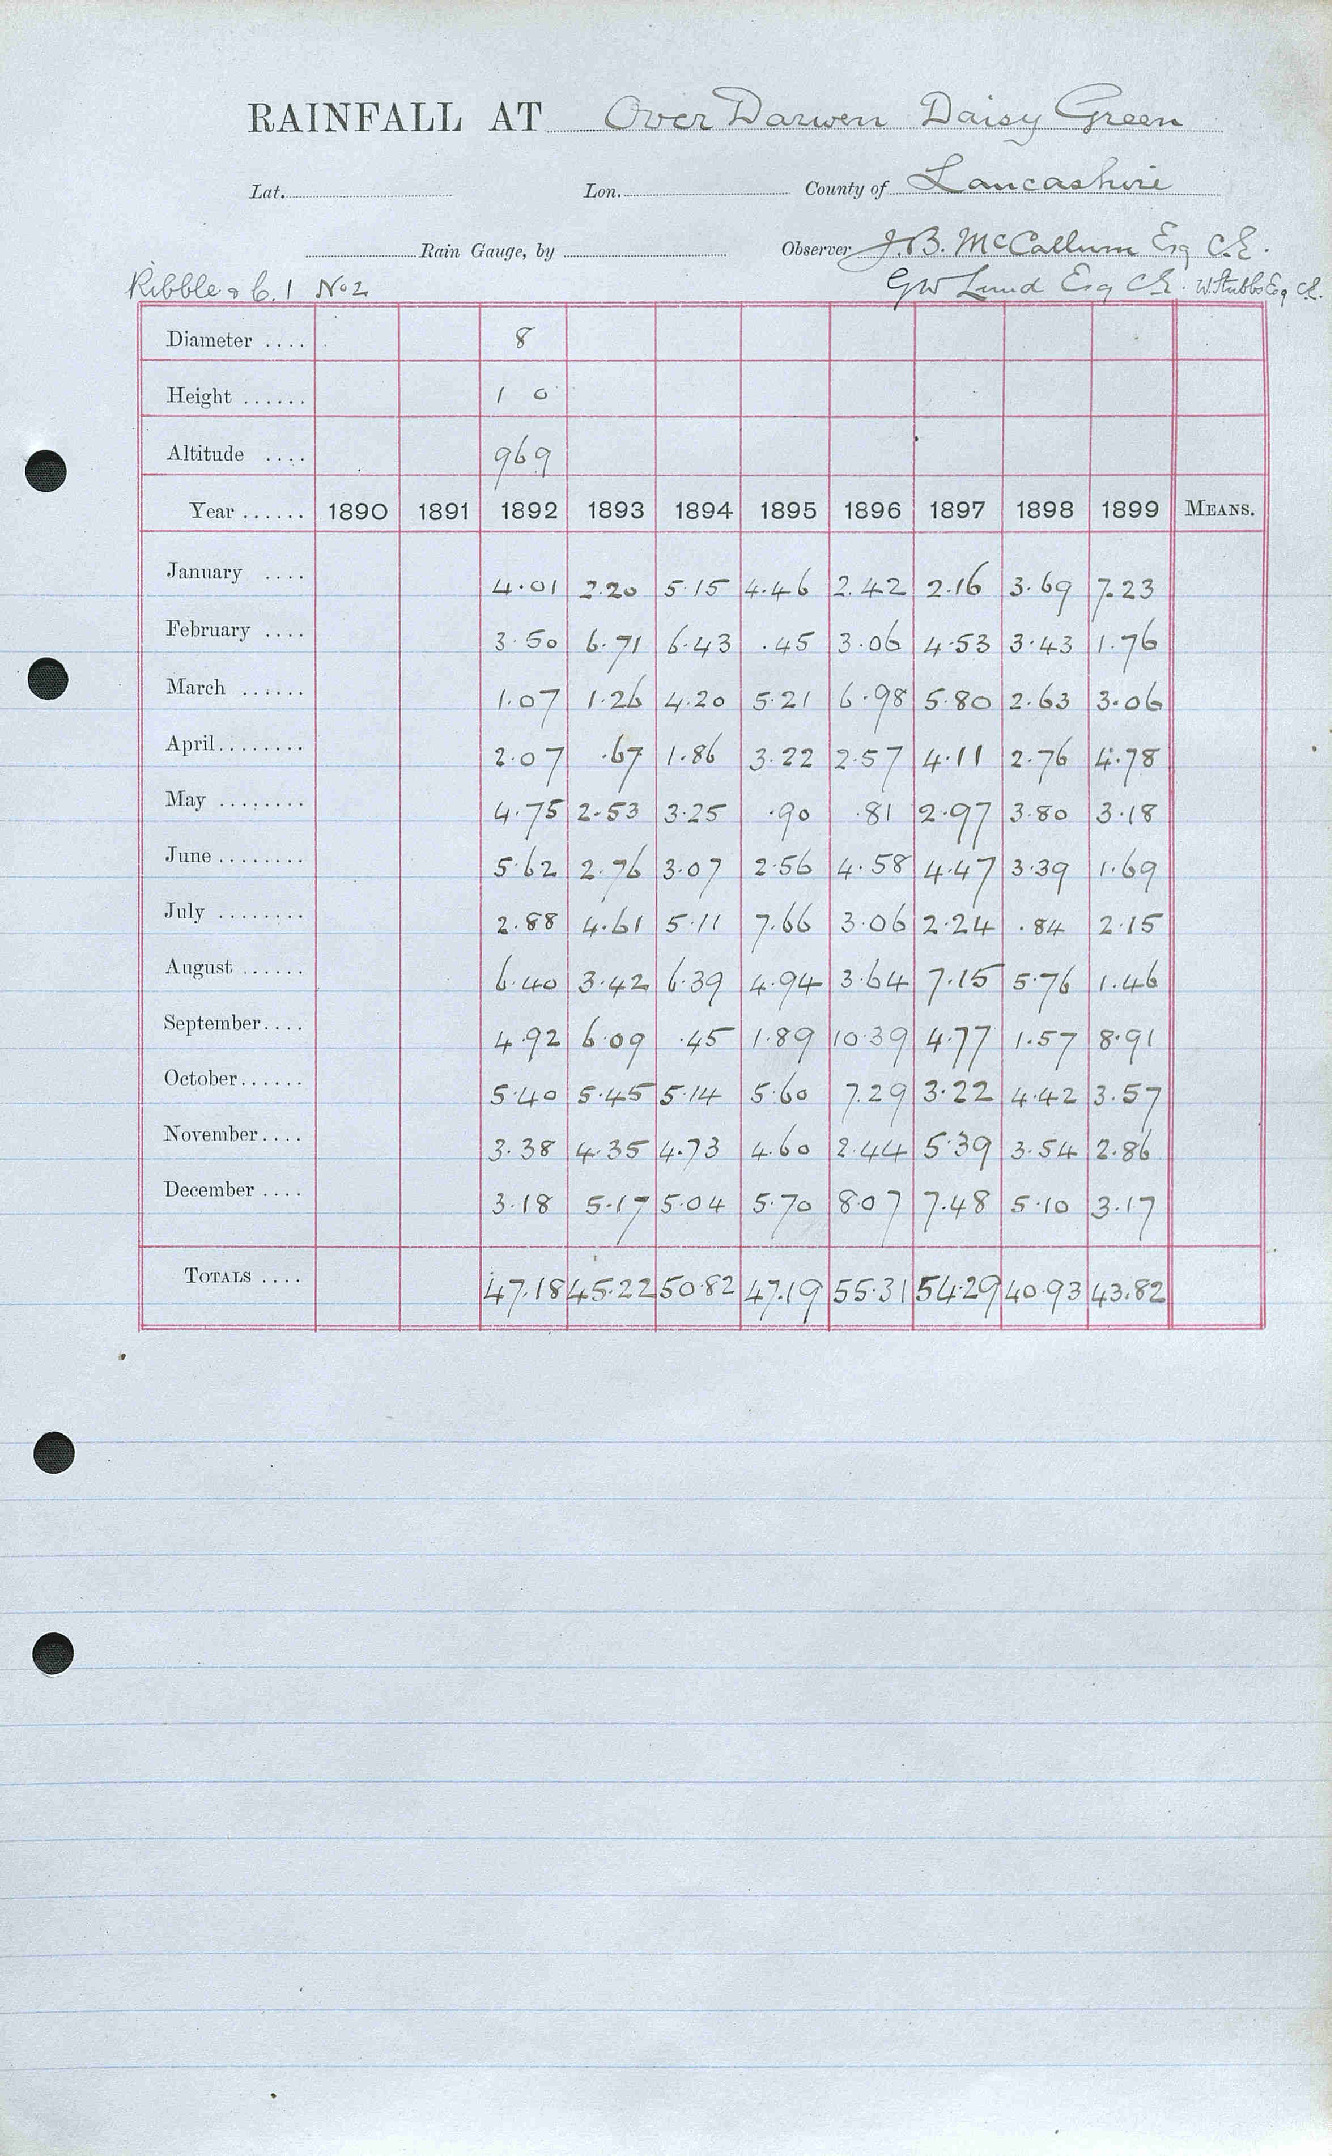 RAINFALL AT Over Darwen Daisy Green
Lat. Lon. County of Lancashire
Rain Gauge, by Observer J.B. McCallum Esq C.E.
Ribble & C. 1 No 2 GW Lund Esq CE. W Stubbs Esq CE.
Diameter .... 8
Height ...... 1 0
Altitude .... 969
Year ...... 1890 1891 1892 1893 1894 1895 1896 1897 1898 1899 MEANS.
January .... 4.01 2.20 5.15 4.46 2.42 2.16 3.69 7.23
February .... 3.50 6.71 6.43 .45 3.06 4.53 3.43 1.76
March ...... 1.07 1.26 4.20 5.21 6.98 5.80 2.63 3.06
April........ 2.07 .67 1.86 3.22 2.57 4.11 2.76 4.78
May ........ 4.75 2.53 3.25 .90 .81 2.97 3.80 3.18
June ........ 5.62 2.76 3.07 2.56 4.58 4.47 3.39 1.69
July ........ 2.88 4.61 5.11 7.66 3.06 2.24 .84 2.15
August ...... 6.40 3.42 6.39 4.94 3.64 7.15 5.76 1.46
September.... 4.92 6.09 .45 1.89 10.39 4.77 1.57 8.91
October...... 5.40 5.45 5.14 5.60 7.29 3.22 4.42 3.57
November.... 3.38 4.35 4.73 4.60 2.44 5.39 3.54 2.86
December .... 3.18 5.17 5.04 5.70 8.07 7.48 5.10 3.17
TOTALS .... 47.18 45.22 50.82 47.19 55.31 54.29 40.93 43.82